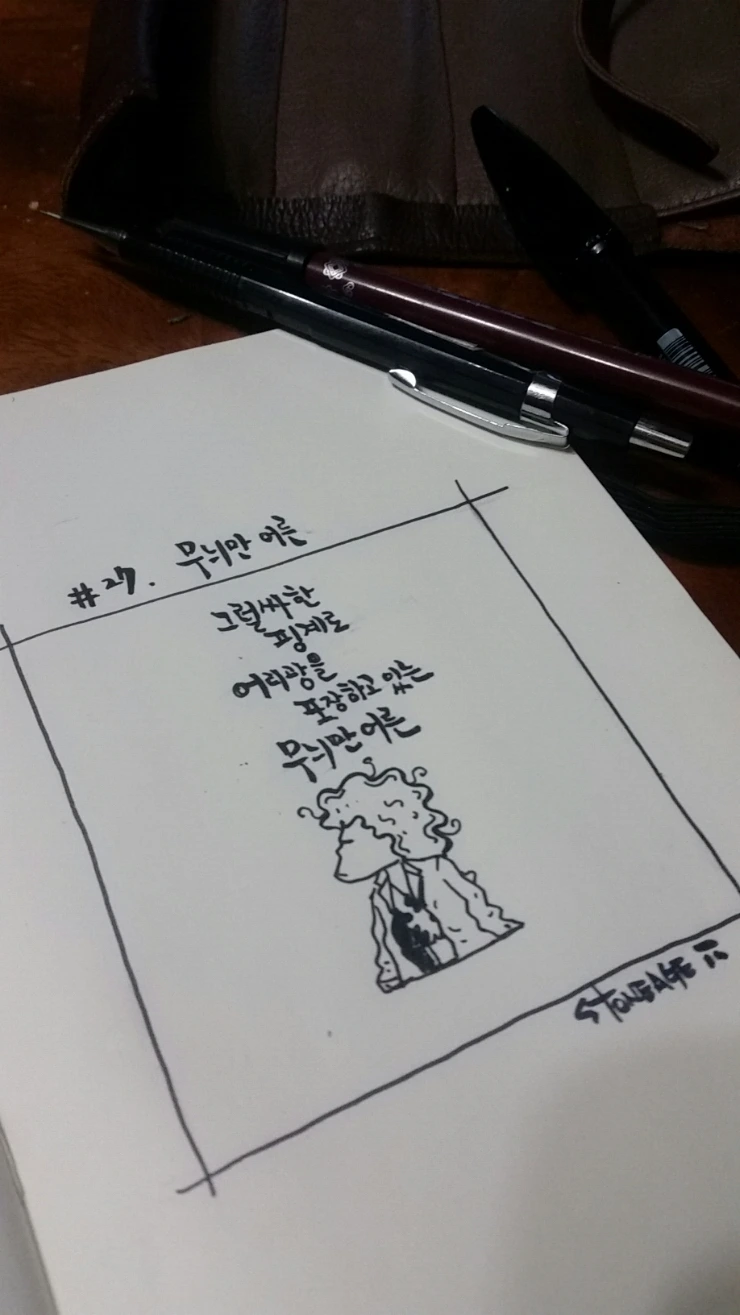 #27. 무늬만 어른
그럴싸한
핑계로
어리광을
포장하고 있는
무늬만 어른
STONEAGE